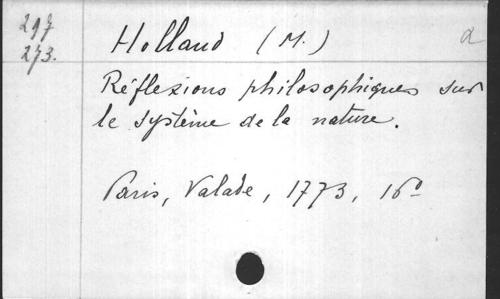 217
273.
Holland (M.) a
Réflexions philosophiques sur
le système de la nature.
Paris, Valade, 1773, 16º